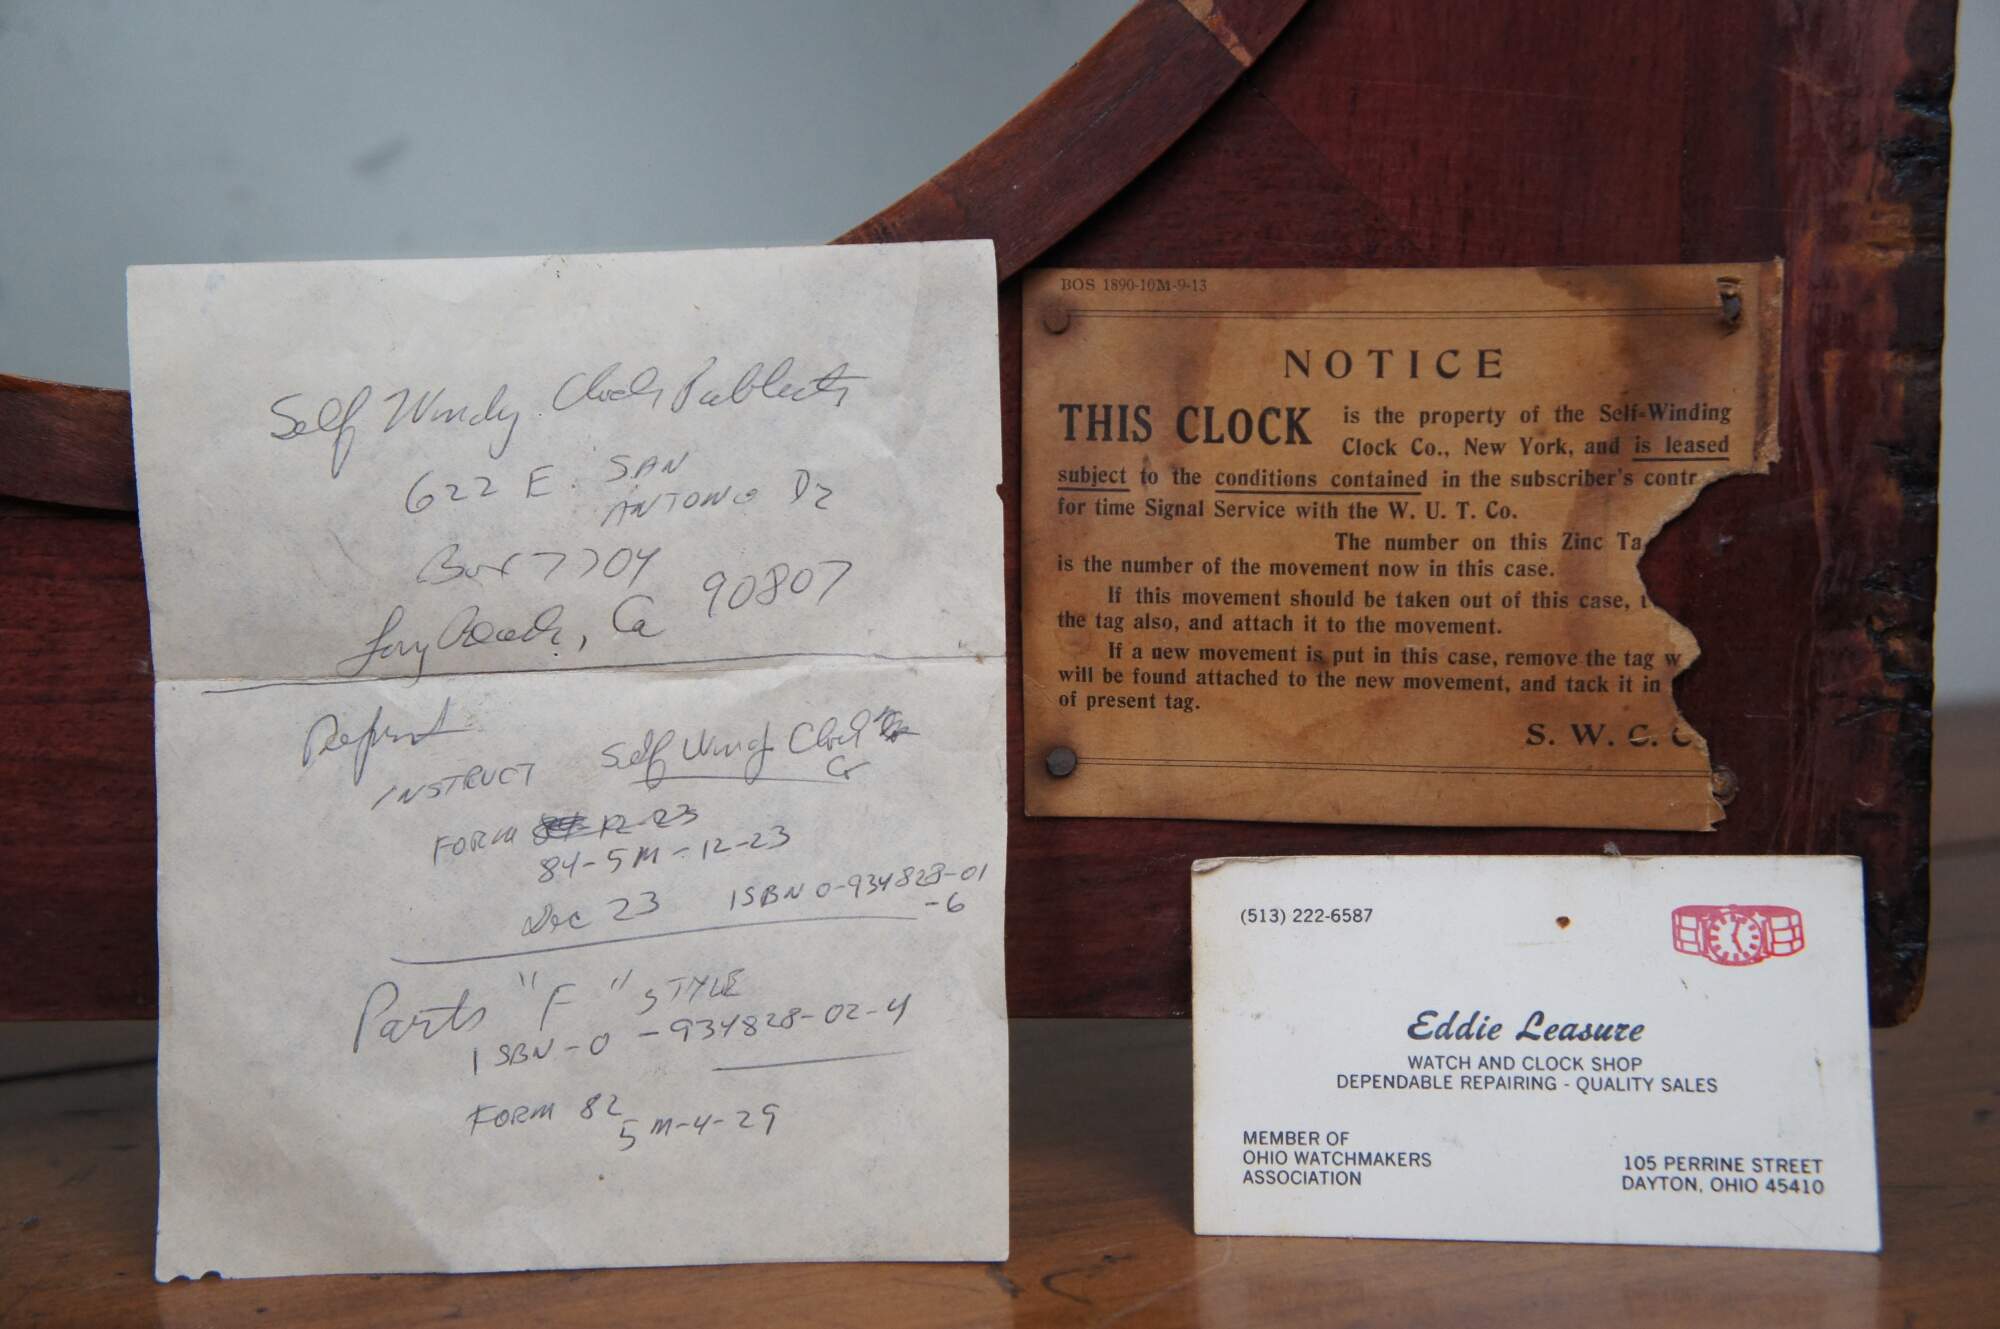 Self Winding Clock Publicats
622 E. SAN
ANTONIO Dr
Box 7704
Long Beach, Ca 90807
Reprint
INSTRUCT Self Wing Clock
Co
FORM 84-12-23
84-5M-12-23
Dec 23 ISBN 0-934828-01
-6
Parts "F" STYLE
ISBN-0-934828-02-4
FORM 82
5M-4-29
BOS 1890-10M-9-13
NOTICE
THIS CLOCK is the property of the Self-Winding
Clock Co., New York, and is leased
subject to the conditions contained in the subscriber's contr
for time Signal Service with the W. U. T. Co.
The number on this Zinc Ta
is the number of the movement now in this case.
If this movement should be taken out of this case, t
the tag also, and attach it to the movement.
If a new movement is put in this case, remove the tag w
will be found attached to the new movement, and tack it in
of present tag.
S. W. C. C
(513) 222-6587
Eddie Leasure
WATCH AND CLOCK SHOP
DEPENDABLE REPAIRING - QUALITY SALES
MEMBER OF
OHIO WATCHMAKERS
ASSOCIATION
105 PERRINE STREET
DAYTON, OHIO 45410